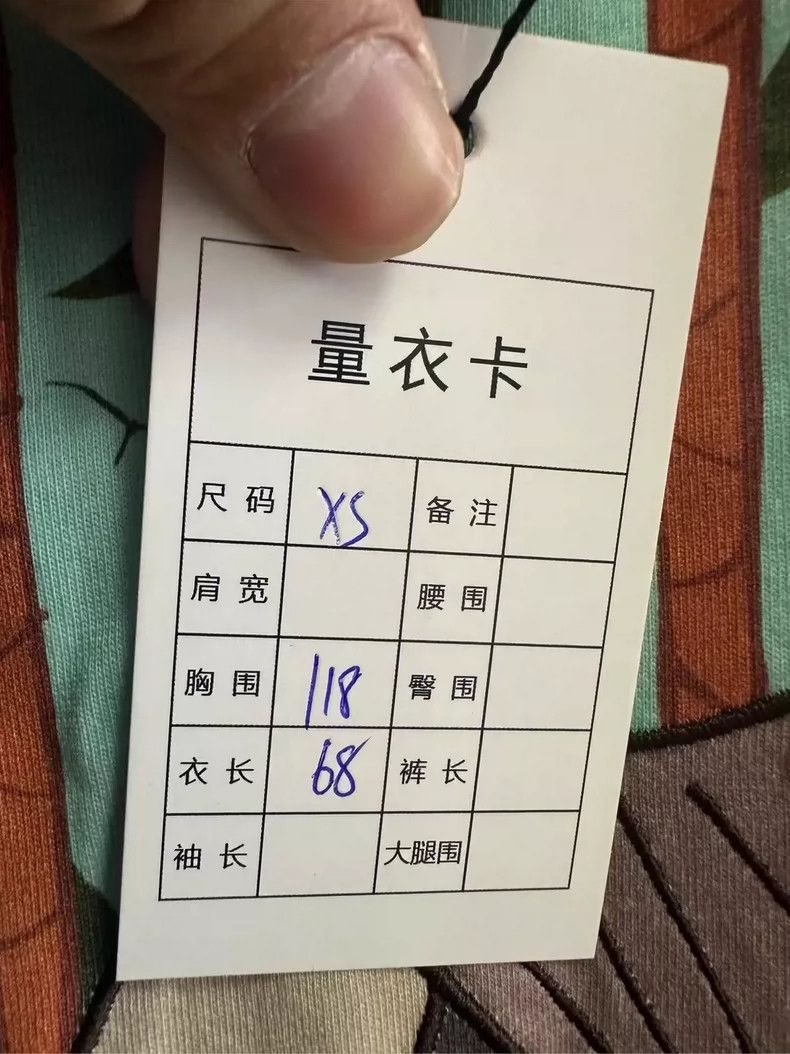 量衣卡
尺码 XS 备注
肩宽 腰围
胸围 118 臀围
衣长 68 裤长
袖长 大腿围